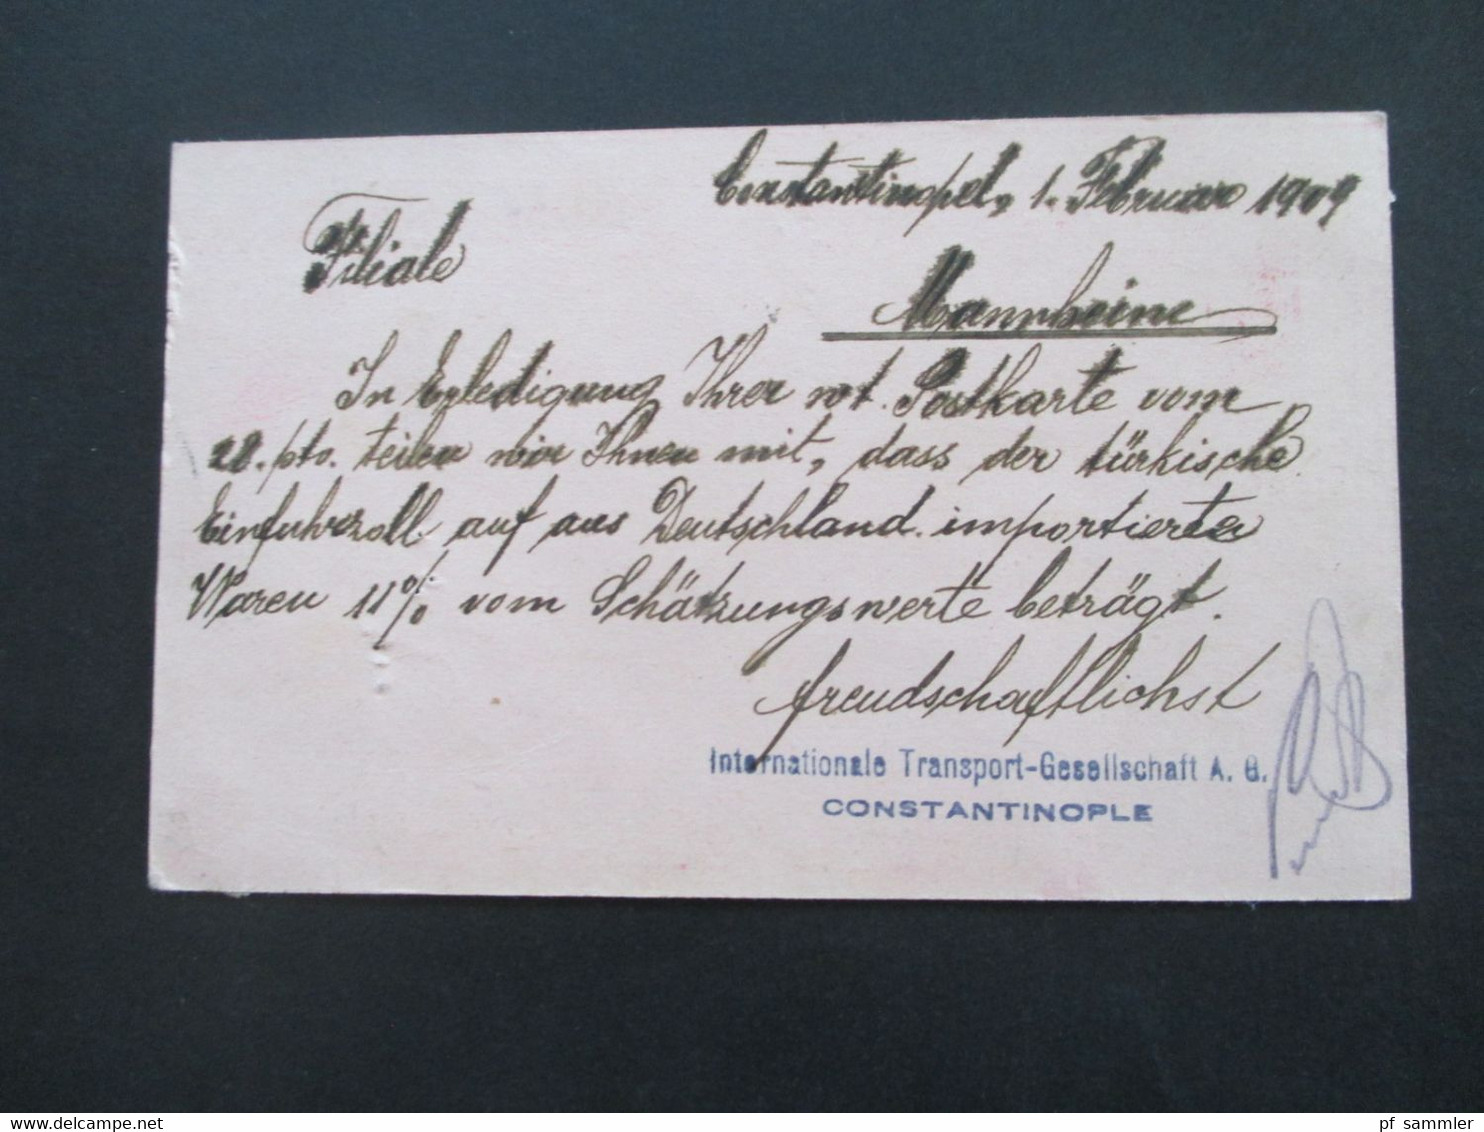 Constantinopel, 1. Februar 1909
Filiale
Mannheim
In Erledigung Ihrer w. Postkarte vom
28. pto. teilen wir Ihnen mit, dass der türkische
Einfuhrzoll auf aus Deutschland importierte
Waren 11% vom Schätzungswerte beträgt.
freundschaftlichst
Internationale Transport-Gesellschaft A. G.
CONSTANTINOPLE
pf_sammler